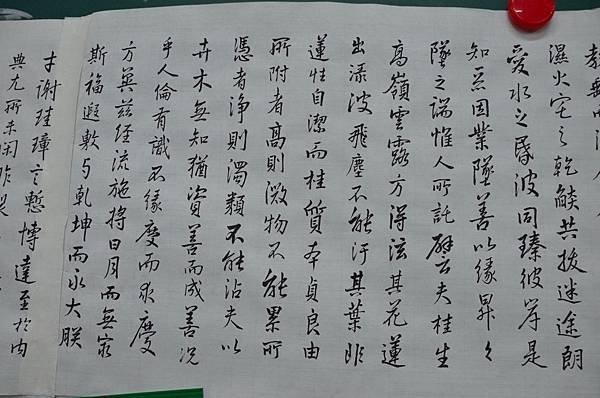 濕火宅之乾燄共拔迷途朗
愛水之昏波同臻彼岸是
知惡因業墜善以緣昇々
墜之端惟人所託譬夫桂生
高嶺雲露方得泫其花蓮
出淥波飛塵不能汙其葉非
蓮性自潔而桂質本貞良由
所附者高則微物不能累所
憑者淨則濁類不能沾夫以
卉木無知猶資善而成善況
乎人倫有識不緣慶而求慶
方冀茲経流施将日月而無窮
斯福遐敷与乾坤而永大朕
才謝珪璋言慙博達至於內
典尤所未閑昨製